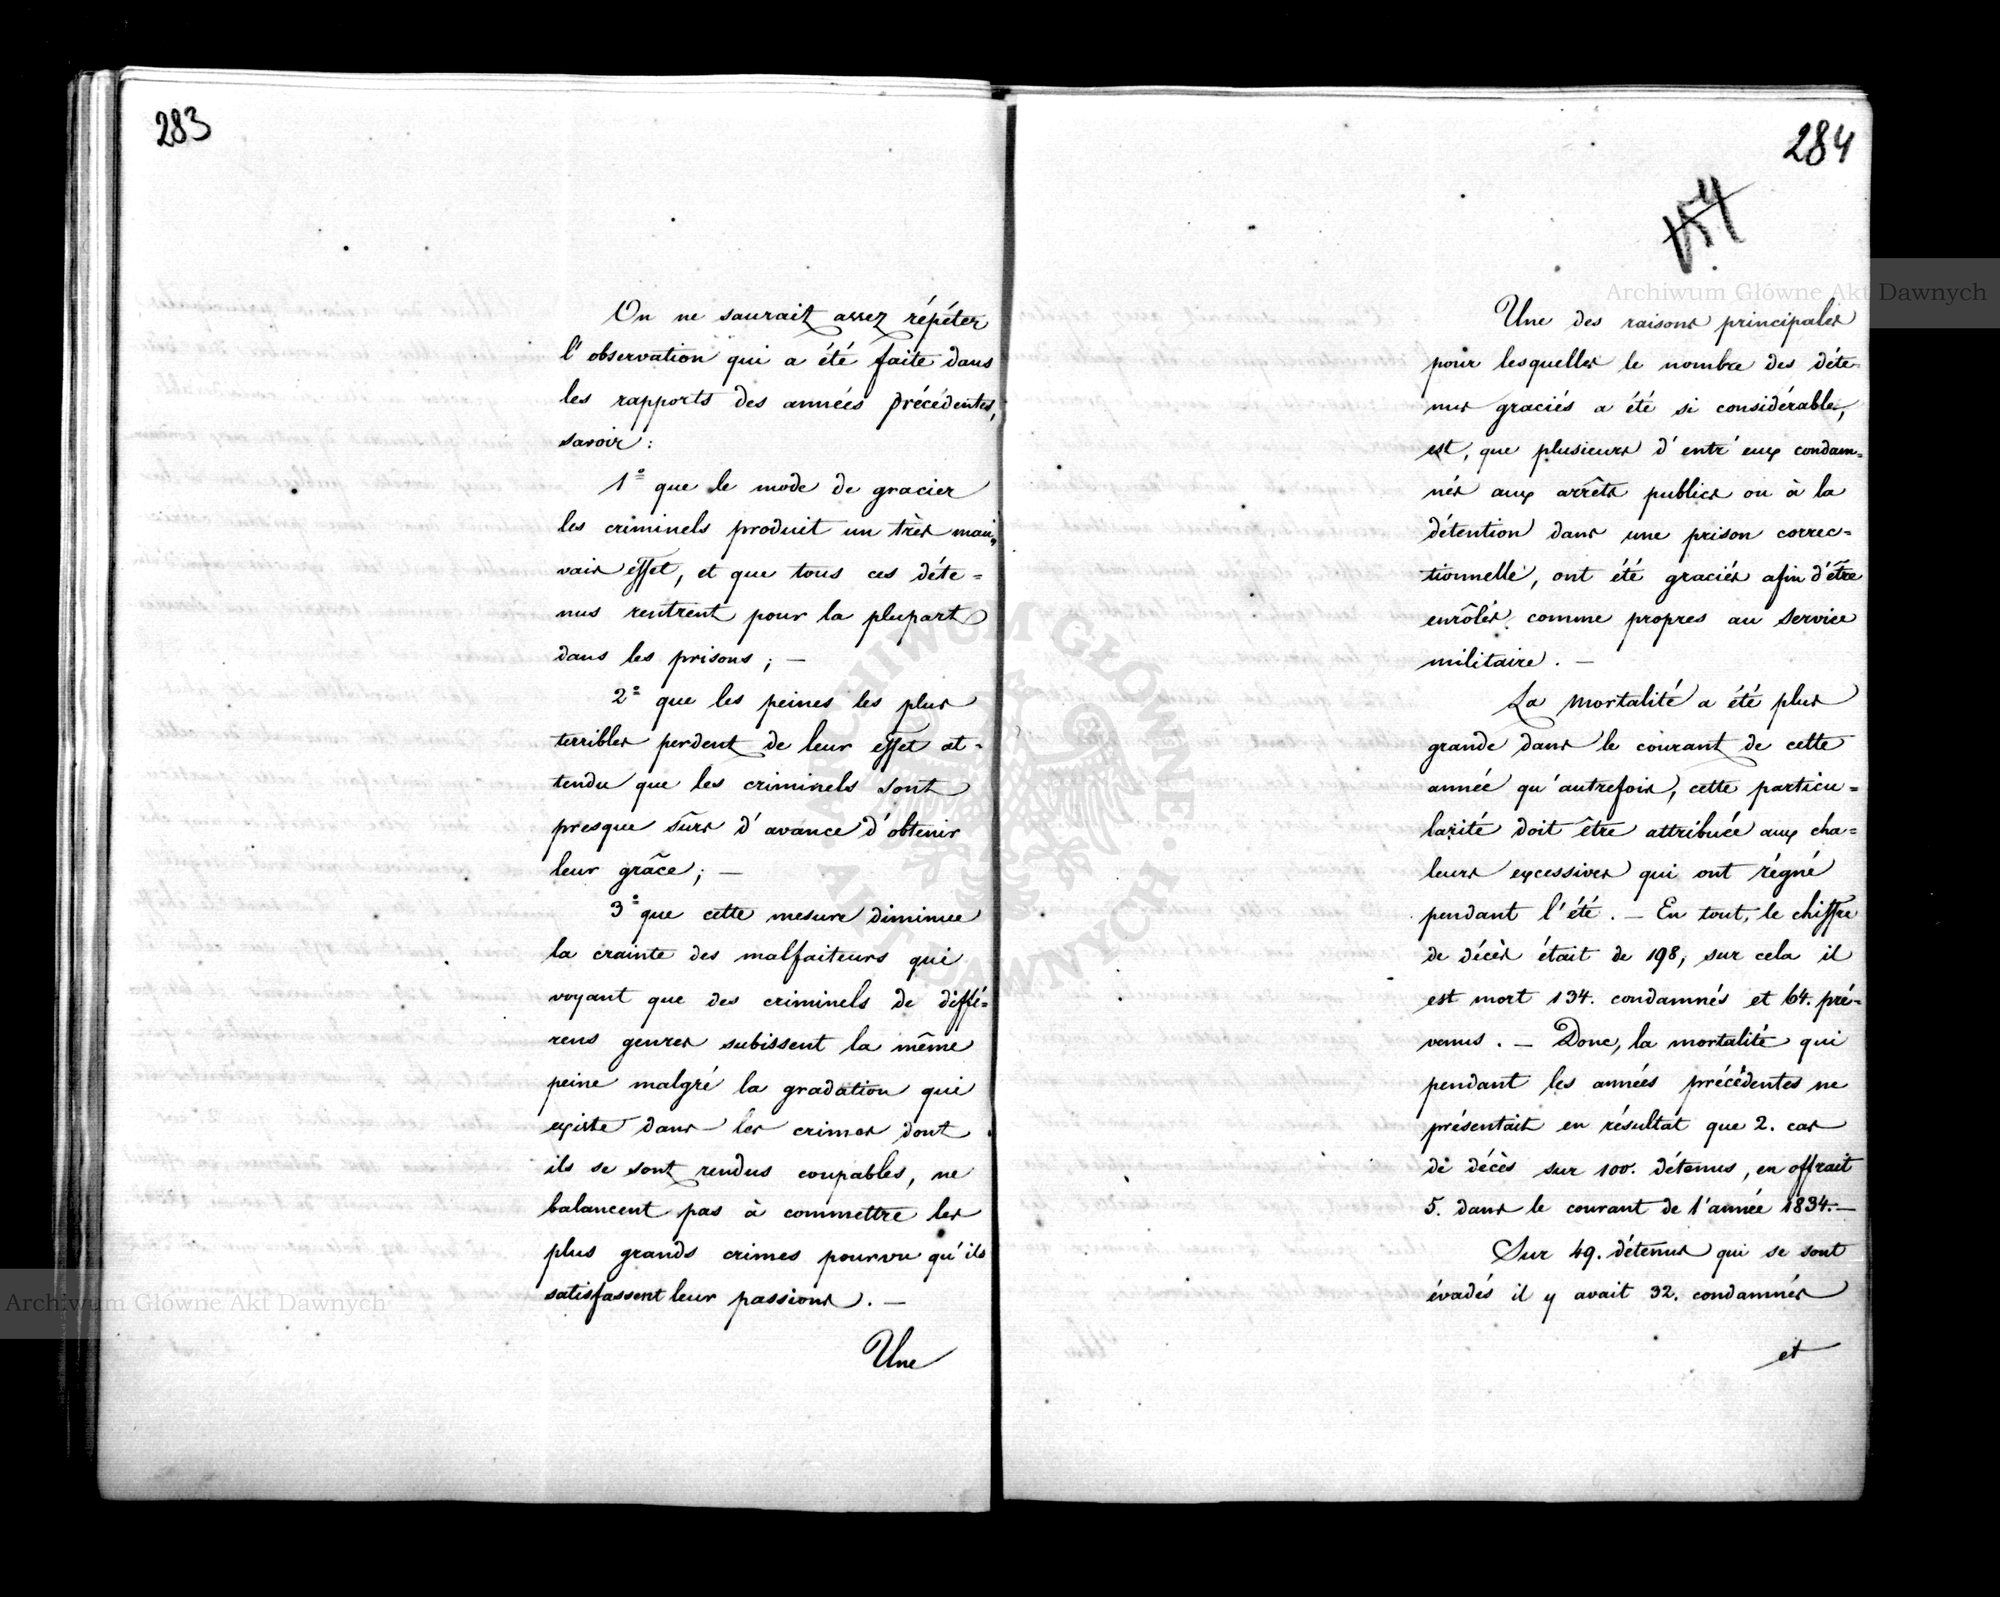 283
On ne saurait assez répéter
l'observation qui a été faite dans
les rapports des années précédentes,
savoir:
1° que le mode de gracier
les criminels produit un très mau=
vais effet, et que tous ces déte=
nus rentrent pour la plupart
dans les prisons; —
2° que les peines les plus
terribles perdent de leur effet at=
tendu que les criminels sont
presque sûrs d'avance d'obtenir
leur grâce; —
3° que cette mesure diminue
la crainte des malfaiteurs qui
voyant que des criminels de diffé=
rens genres subissent la même
peine malgré la gradation qui
existe dans les crimes dont
ils se sont rendus coupables, ne
balancent pas à commettre les
plus grands crimes pourvu qu'ils
satisfassent leur passions. —
Une
284
154
Une des raisons principales
pour lesquelles le nombre des déte=
nus graciés a été si considérable,
est, que plusieurs d'entr'eux condam=
nés aux arrêts publics ou à la
détention dans une prison correc=
tionnelle, ont été graciés afin d'être
enrôlés comme propres au service
militaire. —
La mortalité a été plus
grande dans le courant de cette
année qu'autrefois, cette particu=
larité doit être attribuée aux cha=
leurs excessives qui ont régné
pendant l'été. — En tout, le chiffre
de décès était de 198, sur cela il
est mort 134. condamnés et 64. pré=
venus. — Donc, la mortalité qui
pendant les années précédentes ne
présentait en résultat que 2. cas
de décès sur 100. détenus, en offrait
5. dans le courant de l'année 1834. —
Sur 49. détenus qui se sont
évadés il y avait 32. condamnés
et
Archiwum Główne Akt Dawnych
Archiwum Główne Akt Dawnych
ARCHIWUM GŁÓWNE AKT DAWNYCH